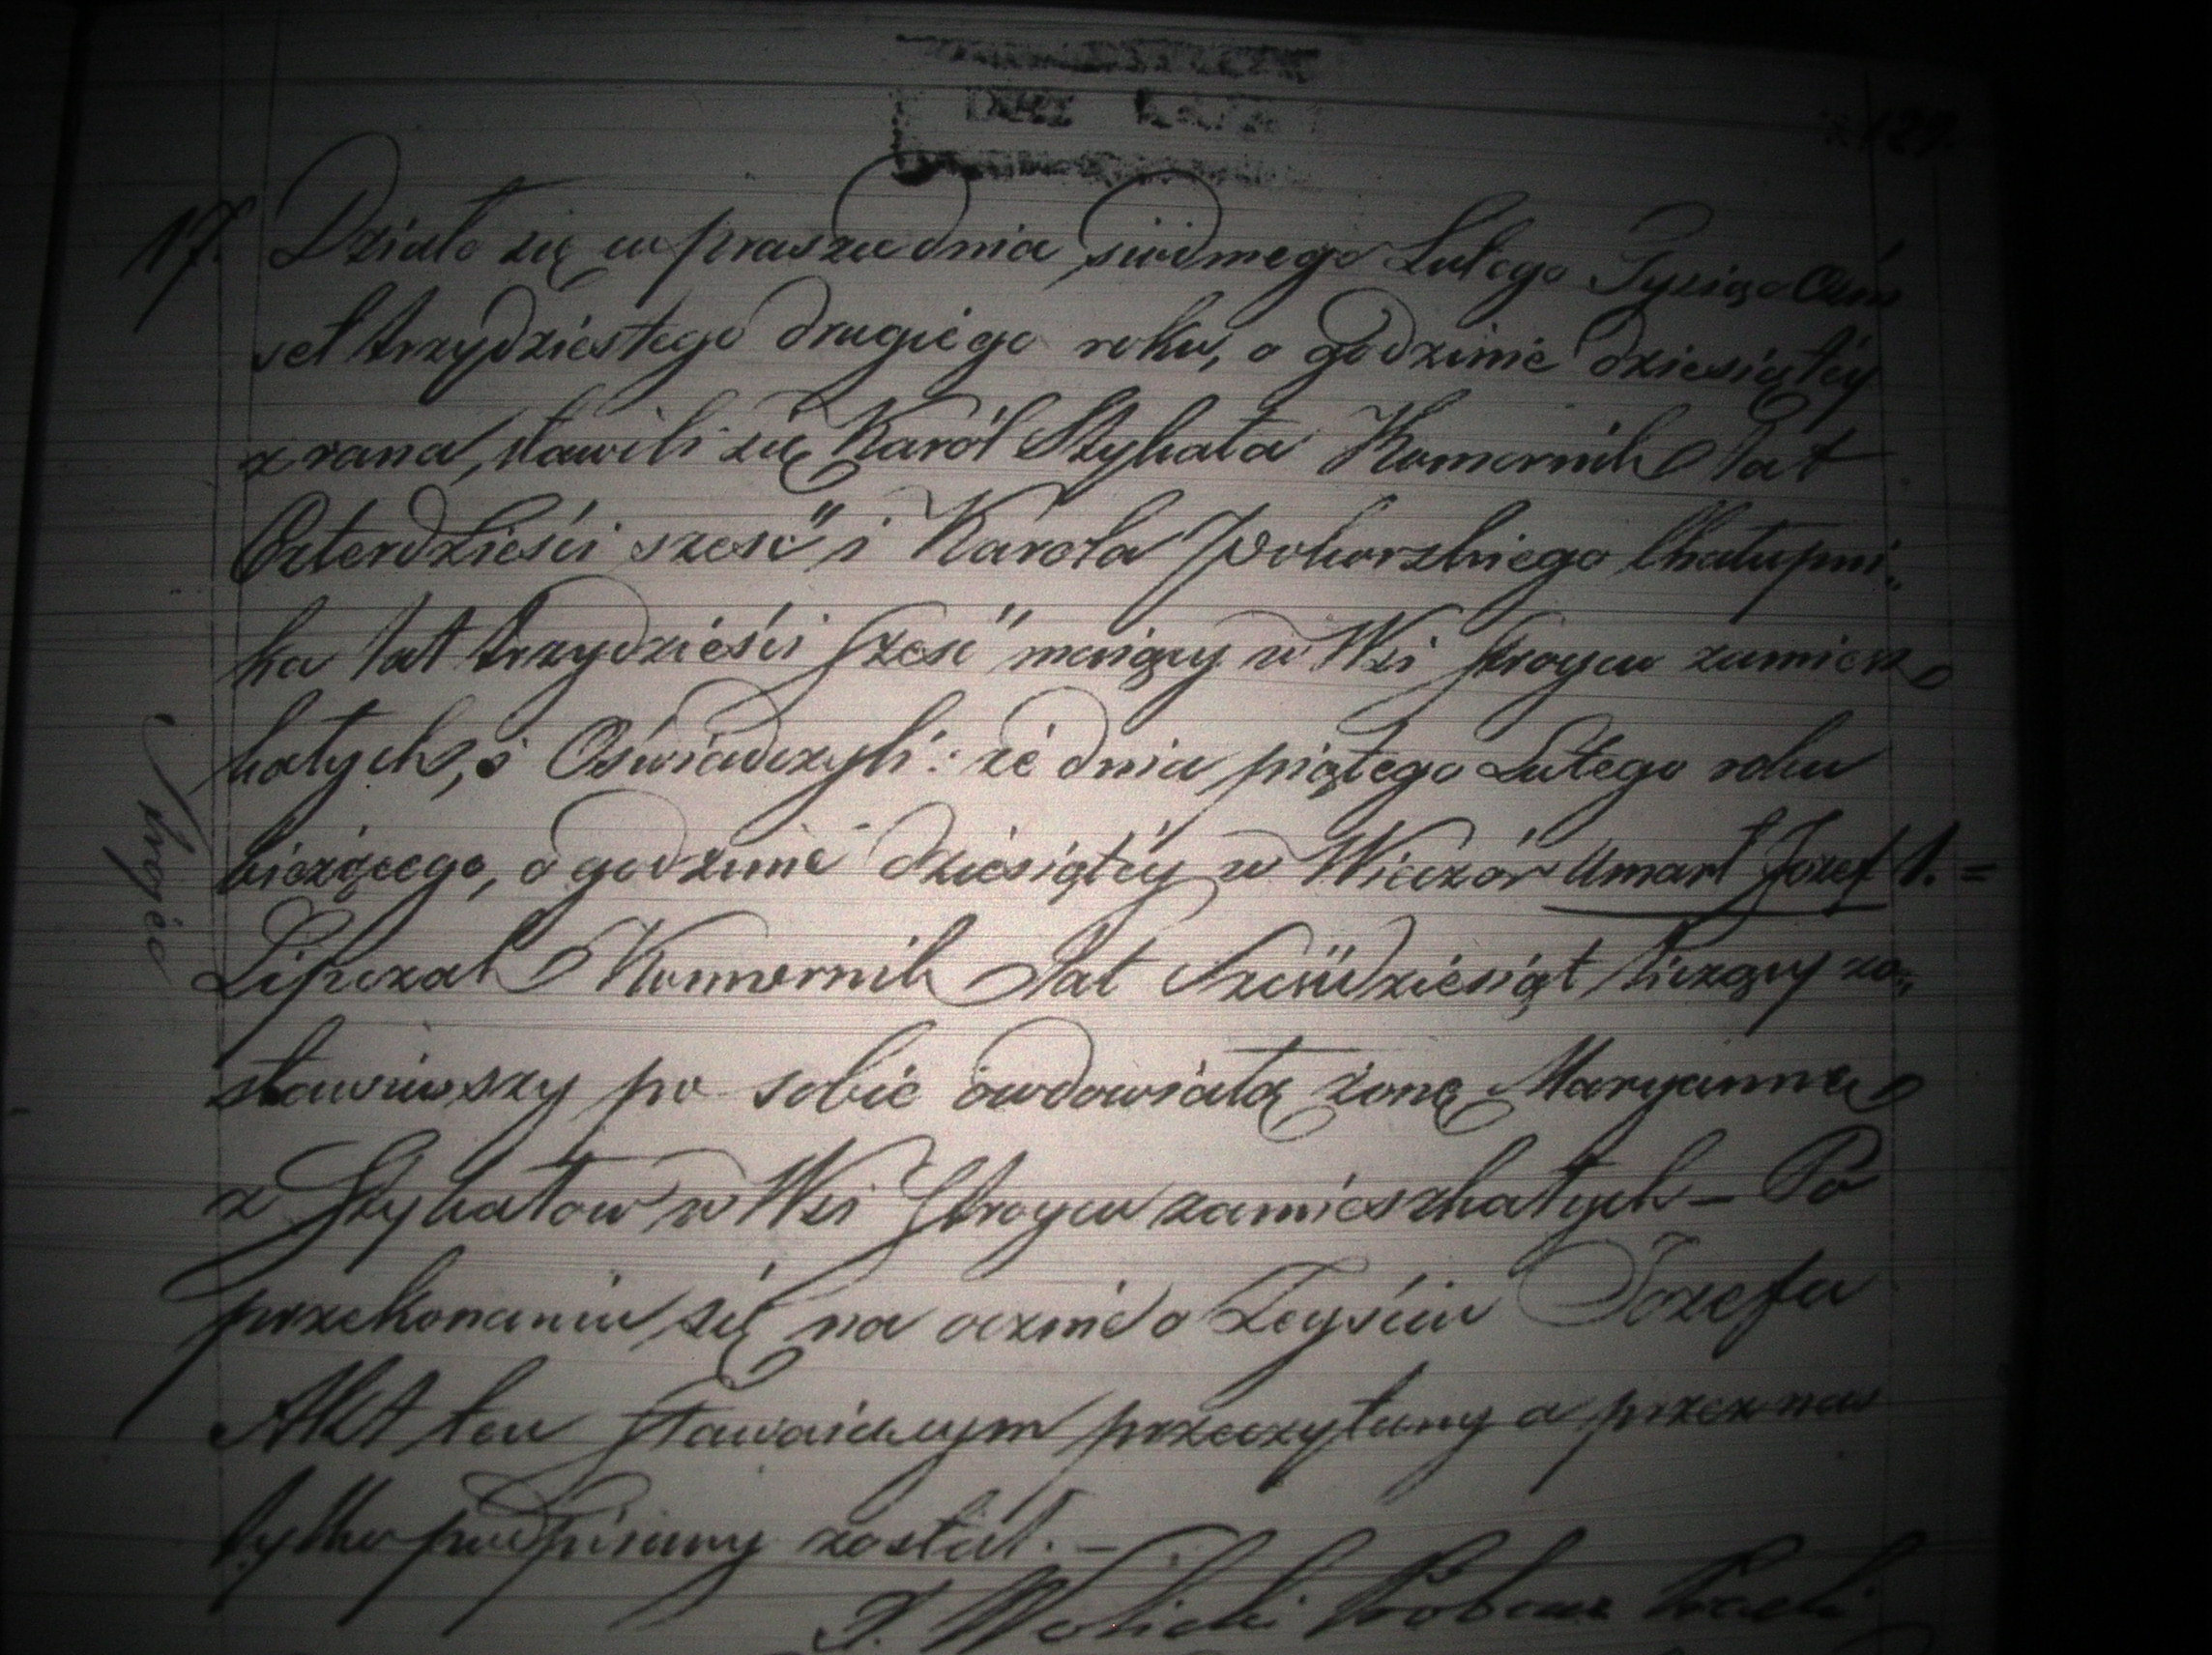 17. Działo się w praszce dnia siódmego Lutego Tysiąc Ośm
set trzydziestego drugiego roku, o godzinie dziesiątéy
z rana, stawili się Karól Stychata Komornik lat
Czterdzieści szesć i Karola Woborskiego Chałupni„
ka lat trzydzieści szesć maiący w Wsi Stroycu zamiesz
kałych, i Oświadczyli: że dnia piątego Lutego roku
bieżącego, o godzinie dziesiątéy w Wieczór Umarł Jozef 1. =
Stroycu
Lipczak Kommornik lat Sześćdziesiąt liczący zo„
stawiwszy po sobie owdowiałą żonę Maryannę
z Stychatow w Wsi Stroycu zamieszkałych – Po
przekonaniu się na ocznie o Zeyściu Jozefa
Akt ten stawaiącym przeczytany a przez nas
tylko podpisany został. –